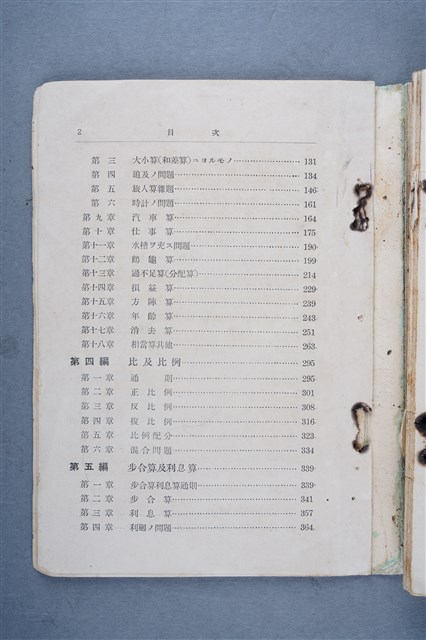 2 目次
第三 大小算(和差算)ニヨルモノ 131
第四 追及ノ問題 134
第五 旅人算雜題 146
第六 時計ノ問題 161
第九章 汽車算 164
第十章 仕事算 175
第十一章 水槽ヲ充ス問題 190
第十二章 鶴龜算 199
第十三章 過不足算(分配算) 214
第十四章 損益算 229
第十五章 方陣算 239
第十六章 年齡算 243
第十七章 消去算 251
第十八章 相當算其他 263
第四編 比及比例 295
第一章 通則 295
第二章 正比例 301
第三章 反比例 308
第四章 複比例 316
第五章 比例配分 323
第六章 混合問題 334
第五編 步合算及利息算 339
第一章 步合算利息算通則 339
第二章 步合算 341
第三章 利息算 357
第四章 利廻ノ問題 364